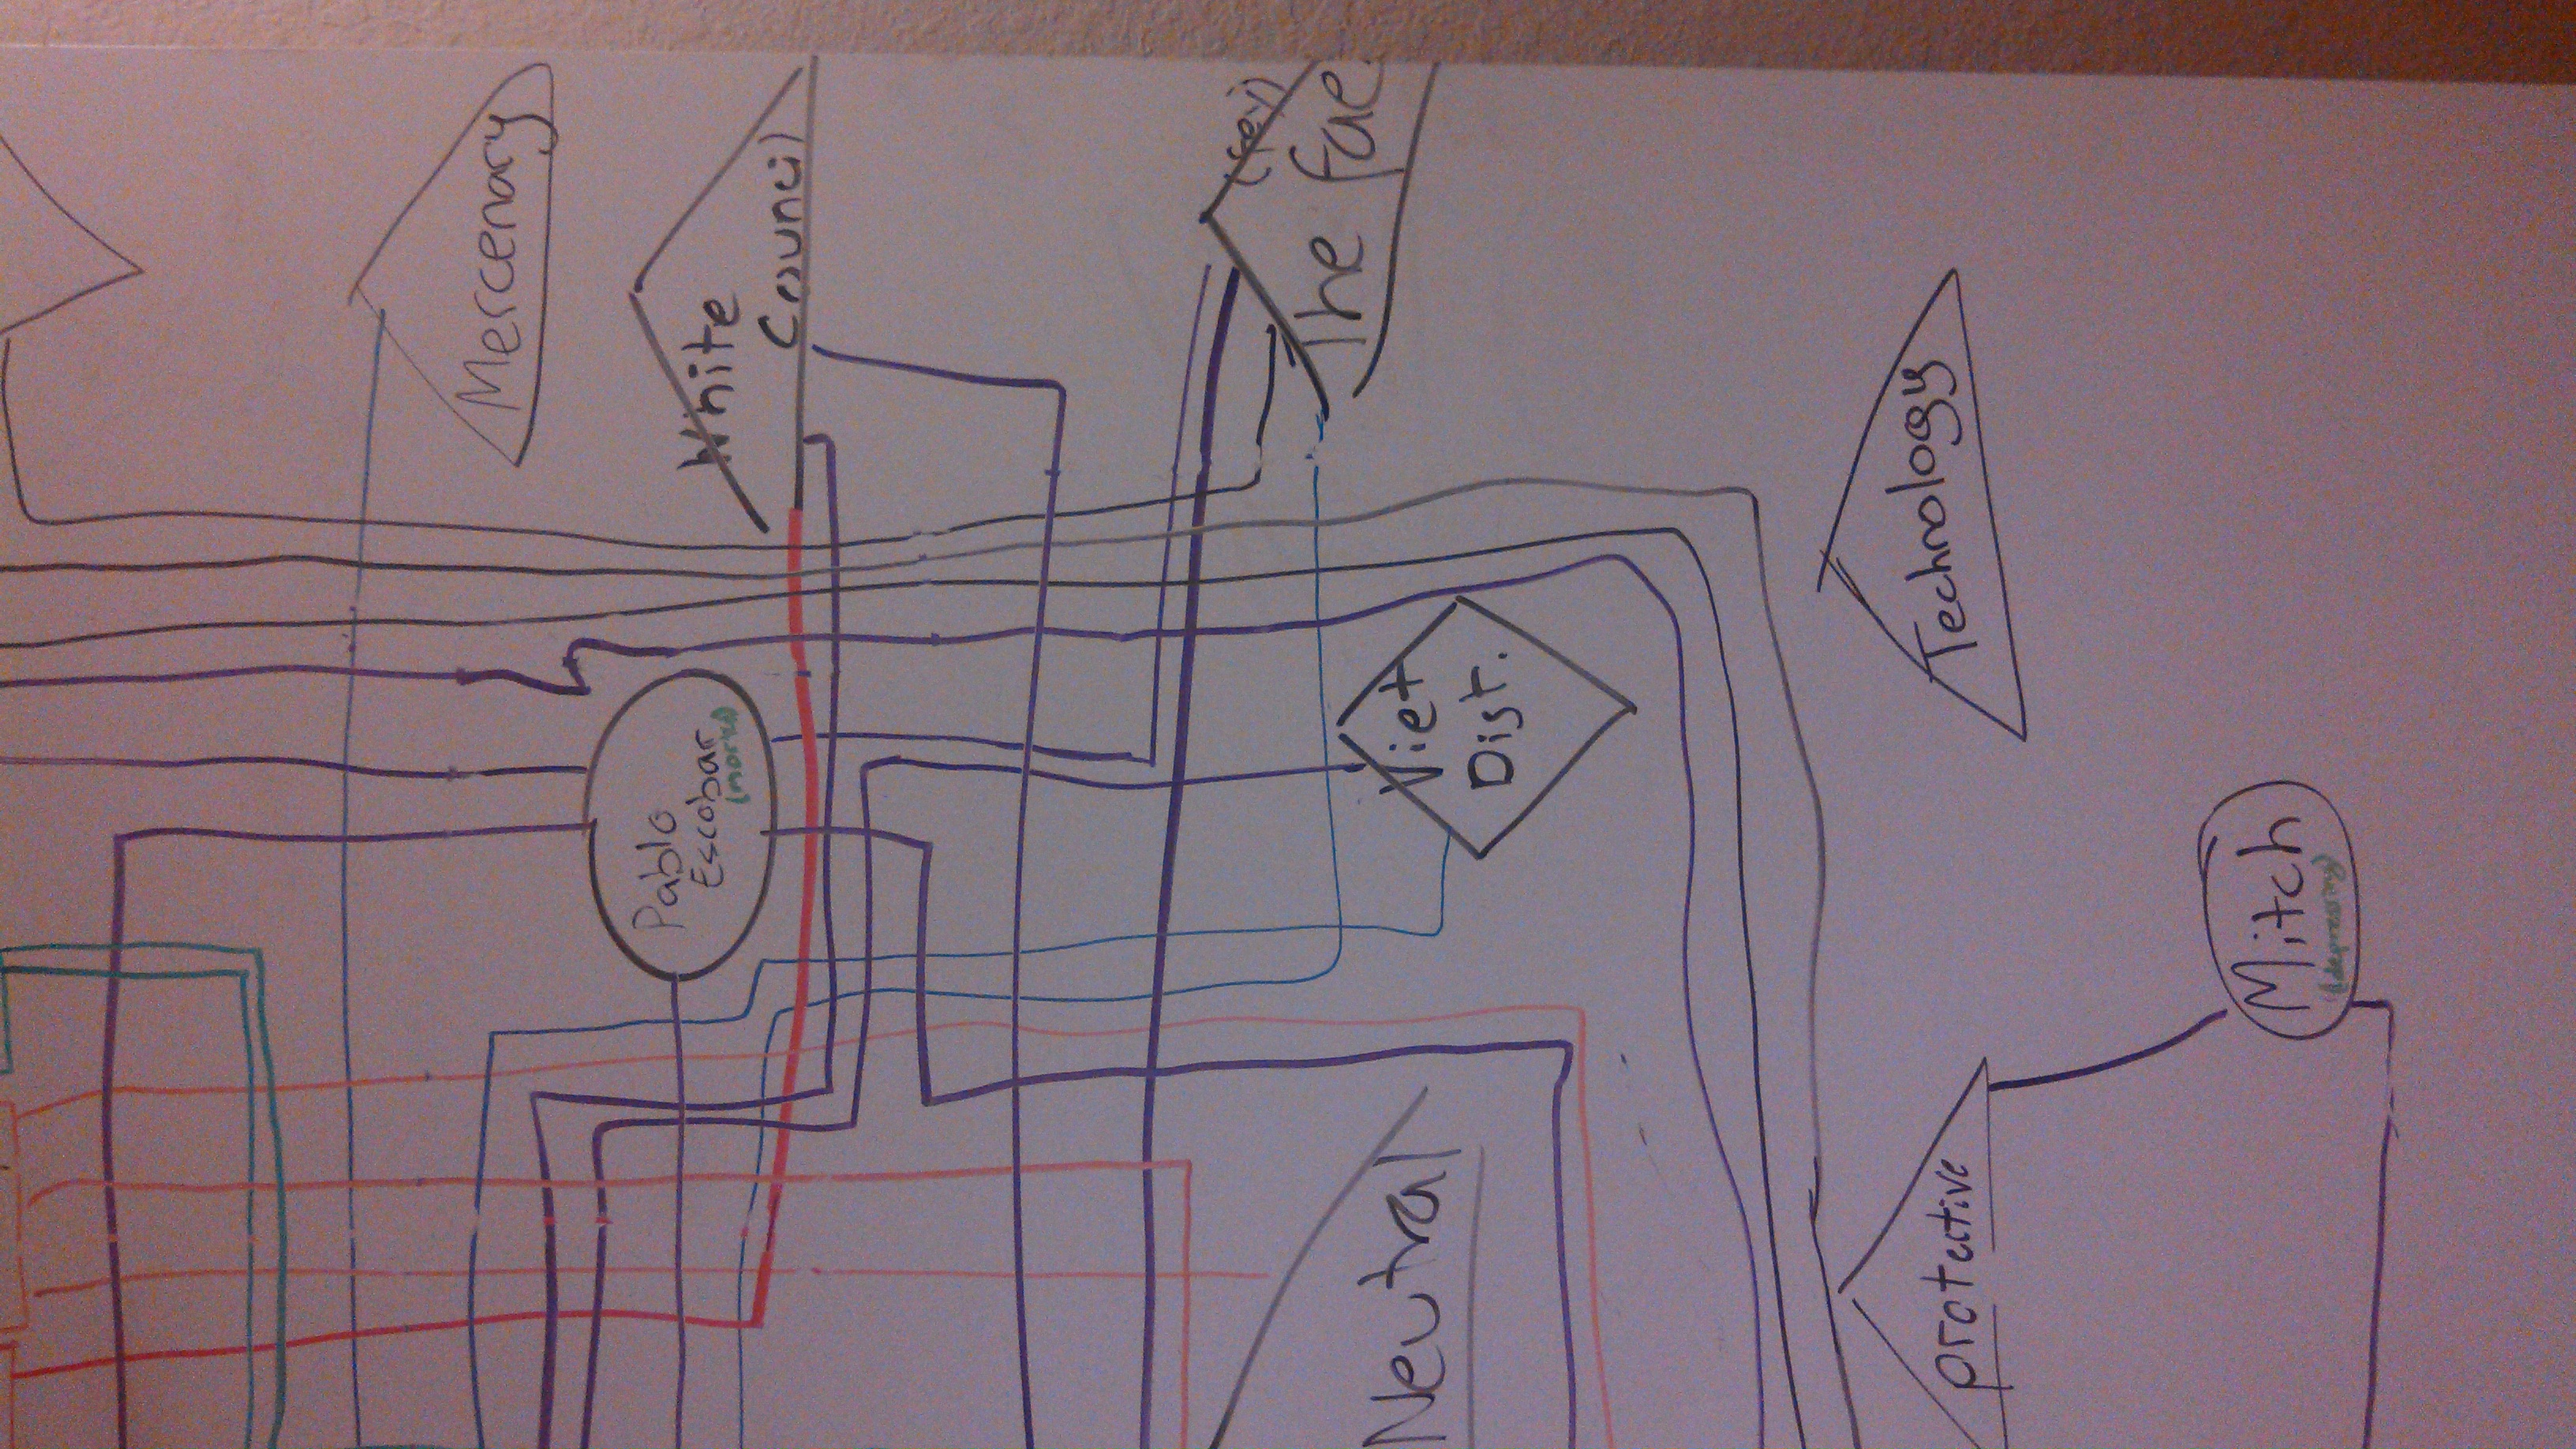 Mercenary
Pablo
Escobar
White
Council
(fey)
The fae
Neutral
Viet
Dist.
protective
Technology
Mitch
(depressing)